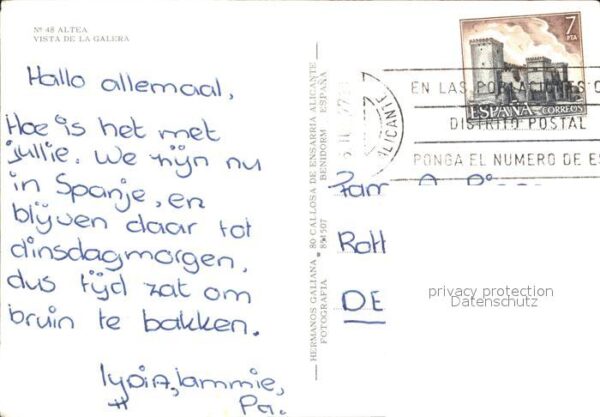 Nº 48 ALTEA
VISTA DE LA GALERA
Hallo allemaal,
Hoe is het met
jullie. We zijn nu
in Spanje, en
blijven daar tot
dinsdagmorgen,
dus tijd zat om
bruin te bakken.
lydia, jammie,
Pa.
HERMANOS GALIANA. 80 CALLOSA DE ENSARRIA ALICANTE
FOTOGRAFIA BENIDORM ESPAÑA
7
PTA
ESPAÑA CORREOS
ALICANTE
EN LAS POBLACIONES C
DISTRITO POSTAL
PONGA EL NUMERO DE ES
Fam. A.
Rott
DE
privacy protection
Datenschutz